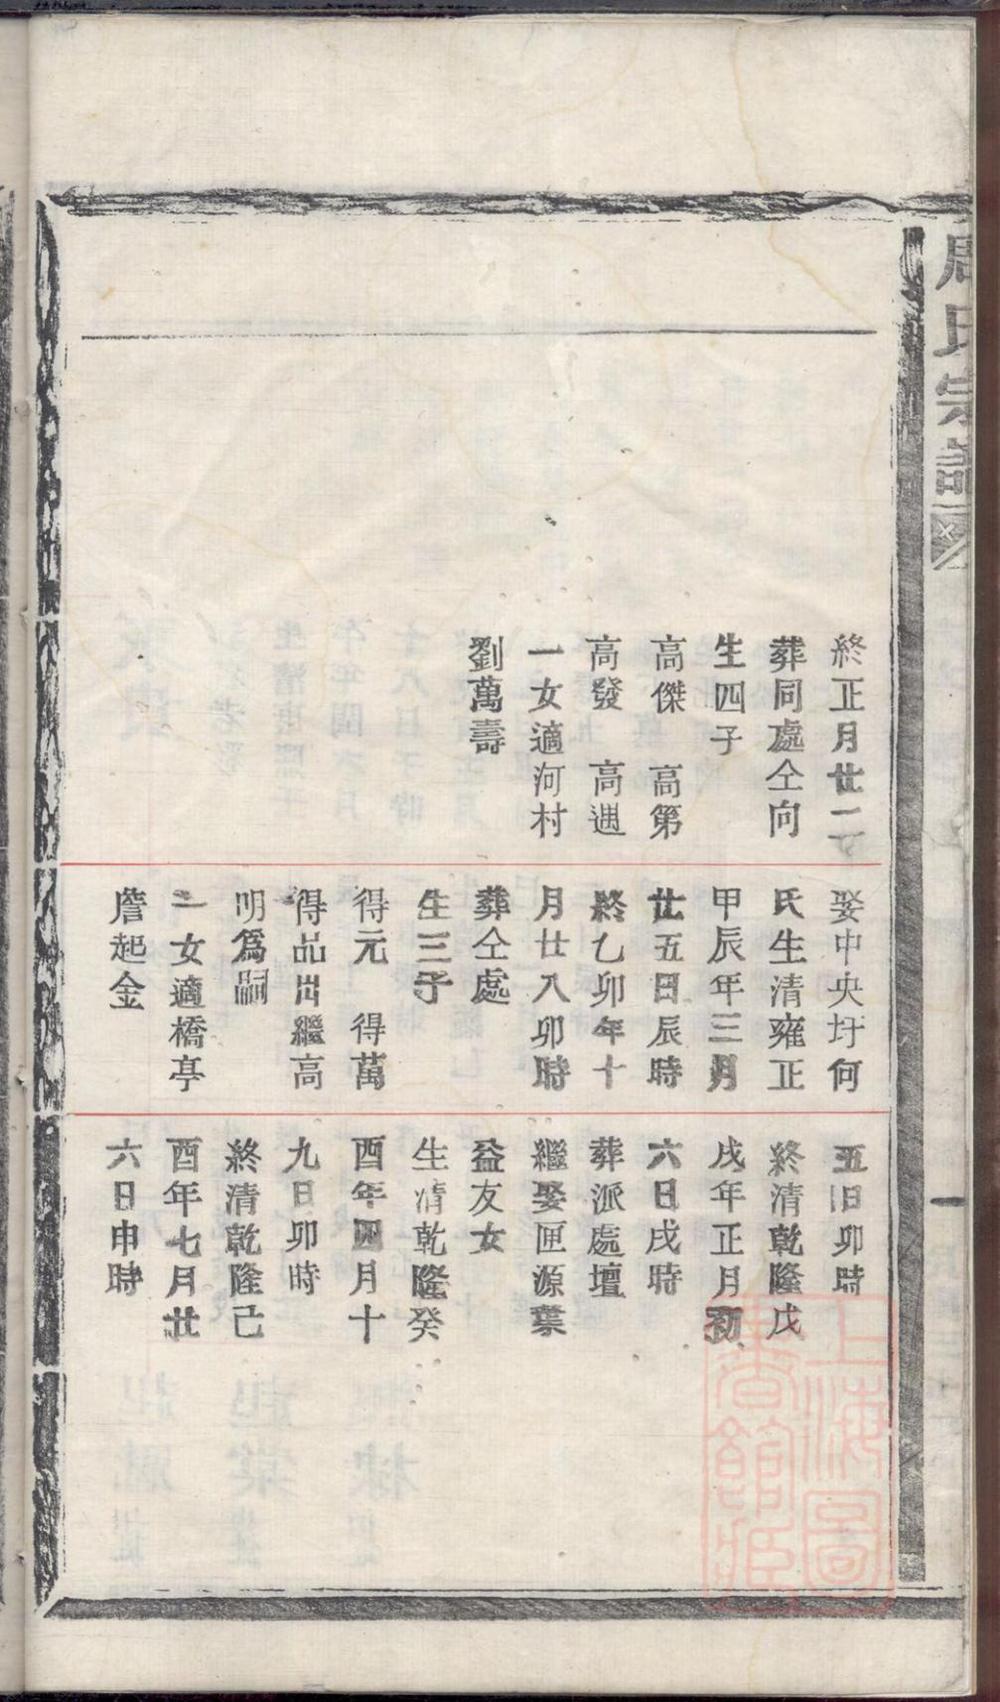 周氏宗譜
終正月廿二
葬同處仝向
生四子
高傑　高第
高發　高遇
一女適河村
劉萬壽
娶中央圩何
氏生清雍正
甲辰年三月
廿五日辰時
終乙卯年十
月廿八卯時
葬仝處
生三子
得元　得萬
得品出繼高
明爲嗣
二女適橋亭
詹起金
五日卯時
終清乾隆戊
戌年正月初
六日戌時
葬派處壇
繼娶匣源葉
益友女
生清乾隆癸
酉年四月十
九日卯時
終清乾隆己
酉年七月廿
六日申時
一
上海圖
書館藏